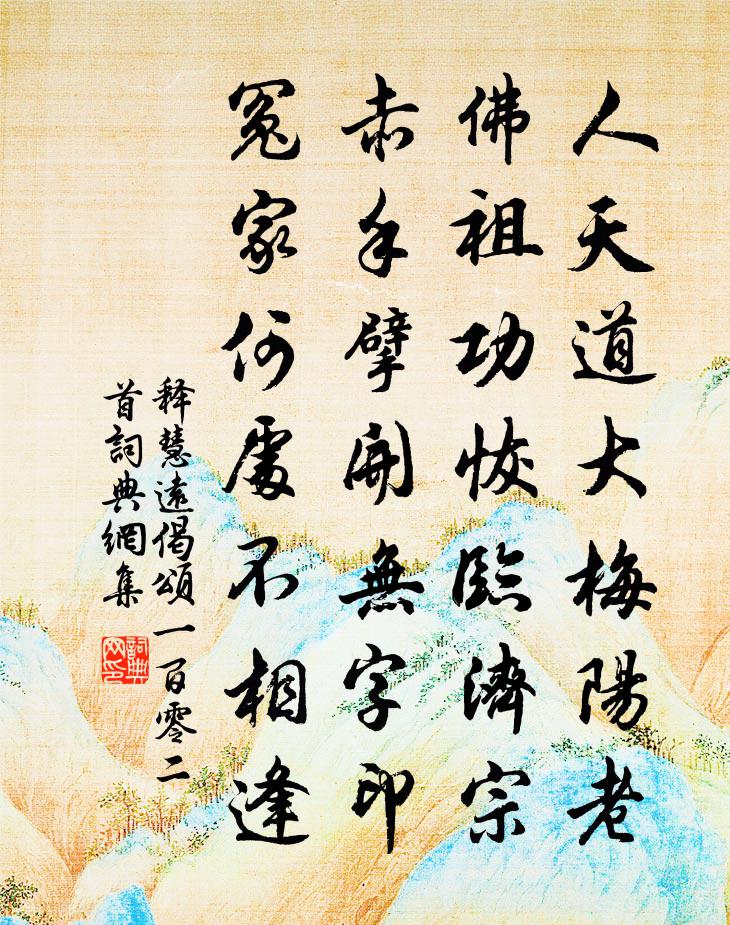 人天道大梅陽老
佛祖功恢臨濟宗
赤手擘開無字印
冤家何處不相逢
释慧遠偈頌一百零二
首詞典網集
詞典网印